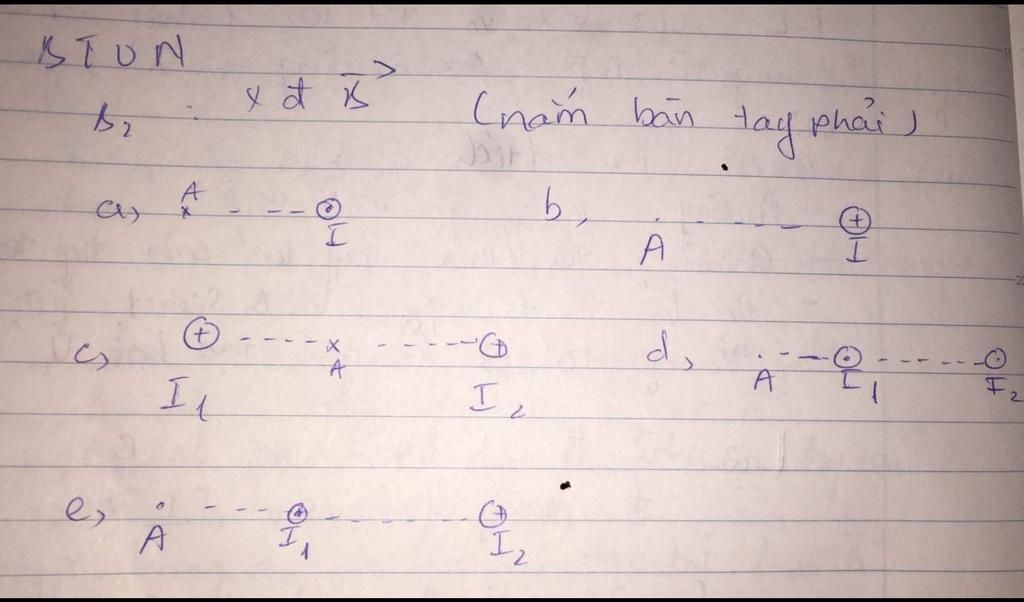 BTVN
B₂ : xđ B⃗ (nắm bàn tay phải)
a, A x - - - ⊙ I b, A . - - - ⊕ I
c, ⊕ I₁ - - - - x A - - - - ⊕ I₂ d, . A - - - ⊙ I₁ - - - - ⊙ I₂
e, . A - - - ⊙ I₁ - - - - ⊕ I₂